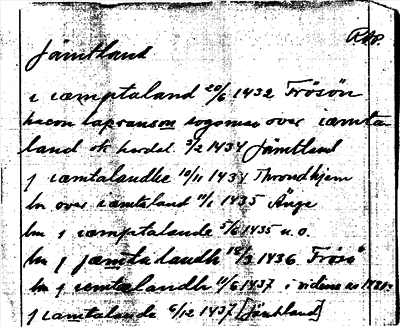 RAP.
Jämtland
i iæmptaland 20/6 1432 Frösön
hacon lapranson sogoman over iæmta
land ok herdal 3/2 1434 Jämtland
j iæmtalandhe 10/11 1434 Throndhjem
bn over iæmtaland 11/1 1435 Ånge
bn j iæmptalande 5/6 1435 u.o.
bn j jæmtalandh 18/3 1436 Frösö
bn j iemtalandh 11/6 1437 i vidimus
j iæmtalande 6/12 1437 [Jämtland]